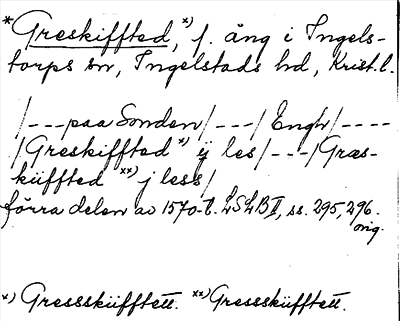 *Greskiffted,ˣ⁾ f. äng i Ingels-
torps sn, Ingelstads hd, Krist. l.
/---paa Sonden/---/Engh/----
/Greskifftedˣ⁾ ij les/---/Græs-
küfftedˣˣ⁾ j less/
förra delen av 1570-t. LSLB II, ss. 295, 296.
orig.
ˣ⁾ Gressskùfftett. ˣˣ⁾ Gressskùfftett.